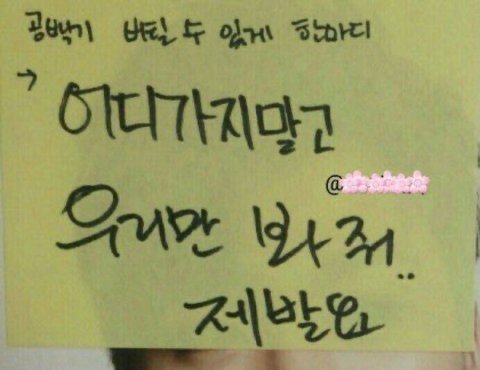 공백기 버틸 수 있게 한마디
→ 어디가지말고
@
우리만 봐줘..
제발요